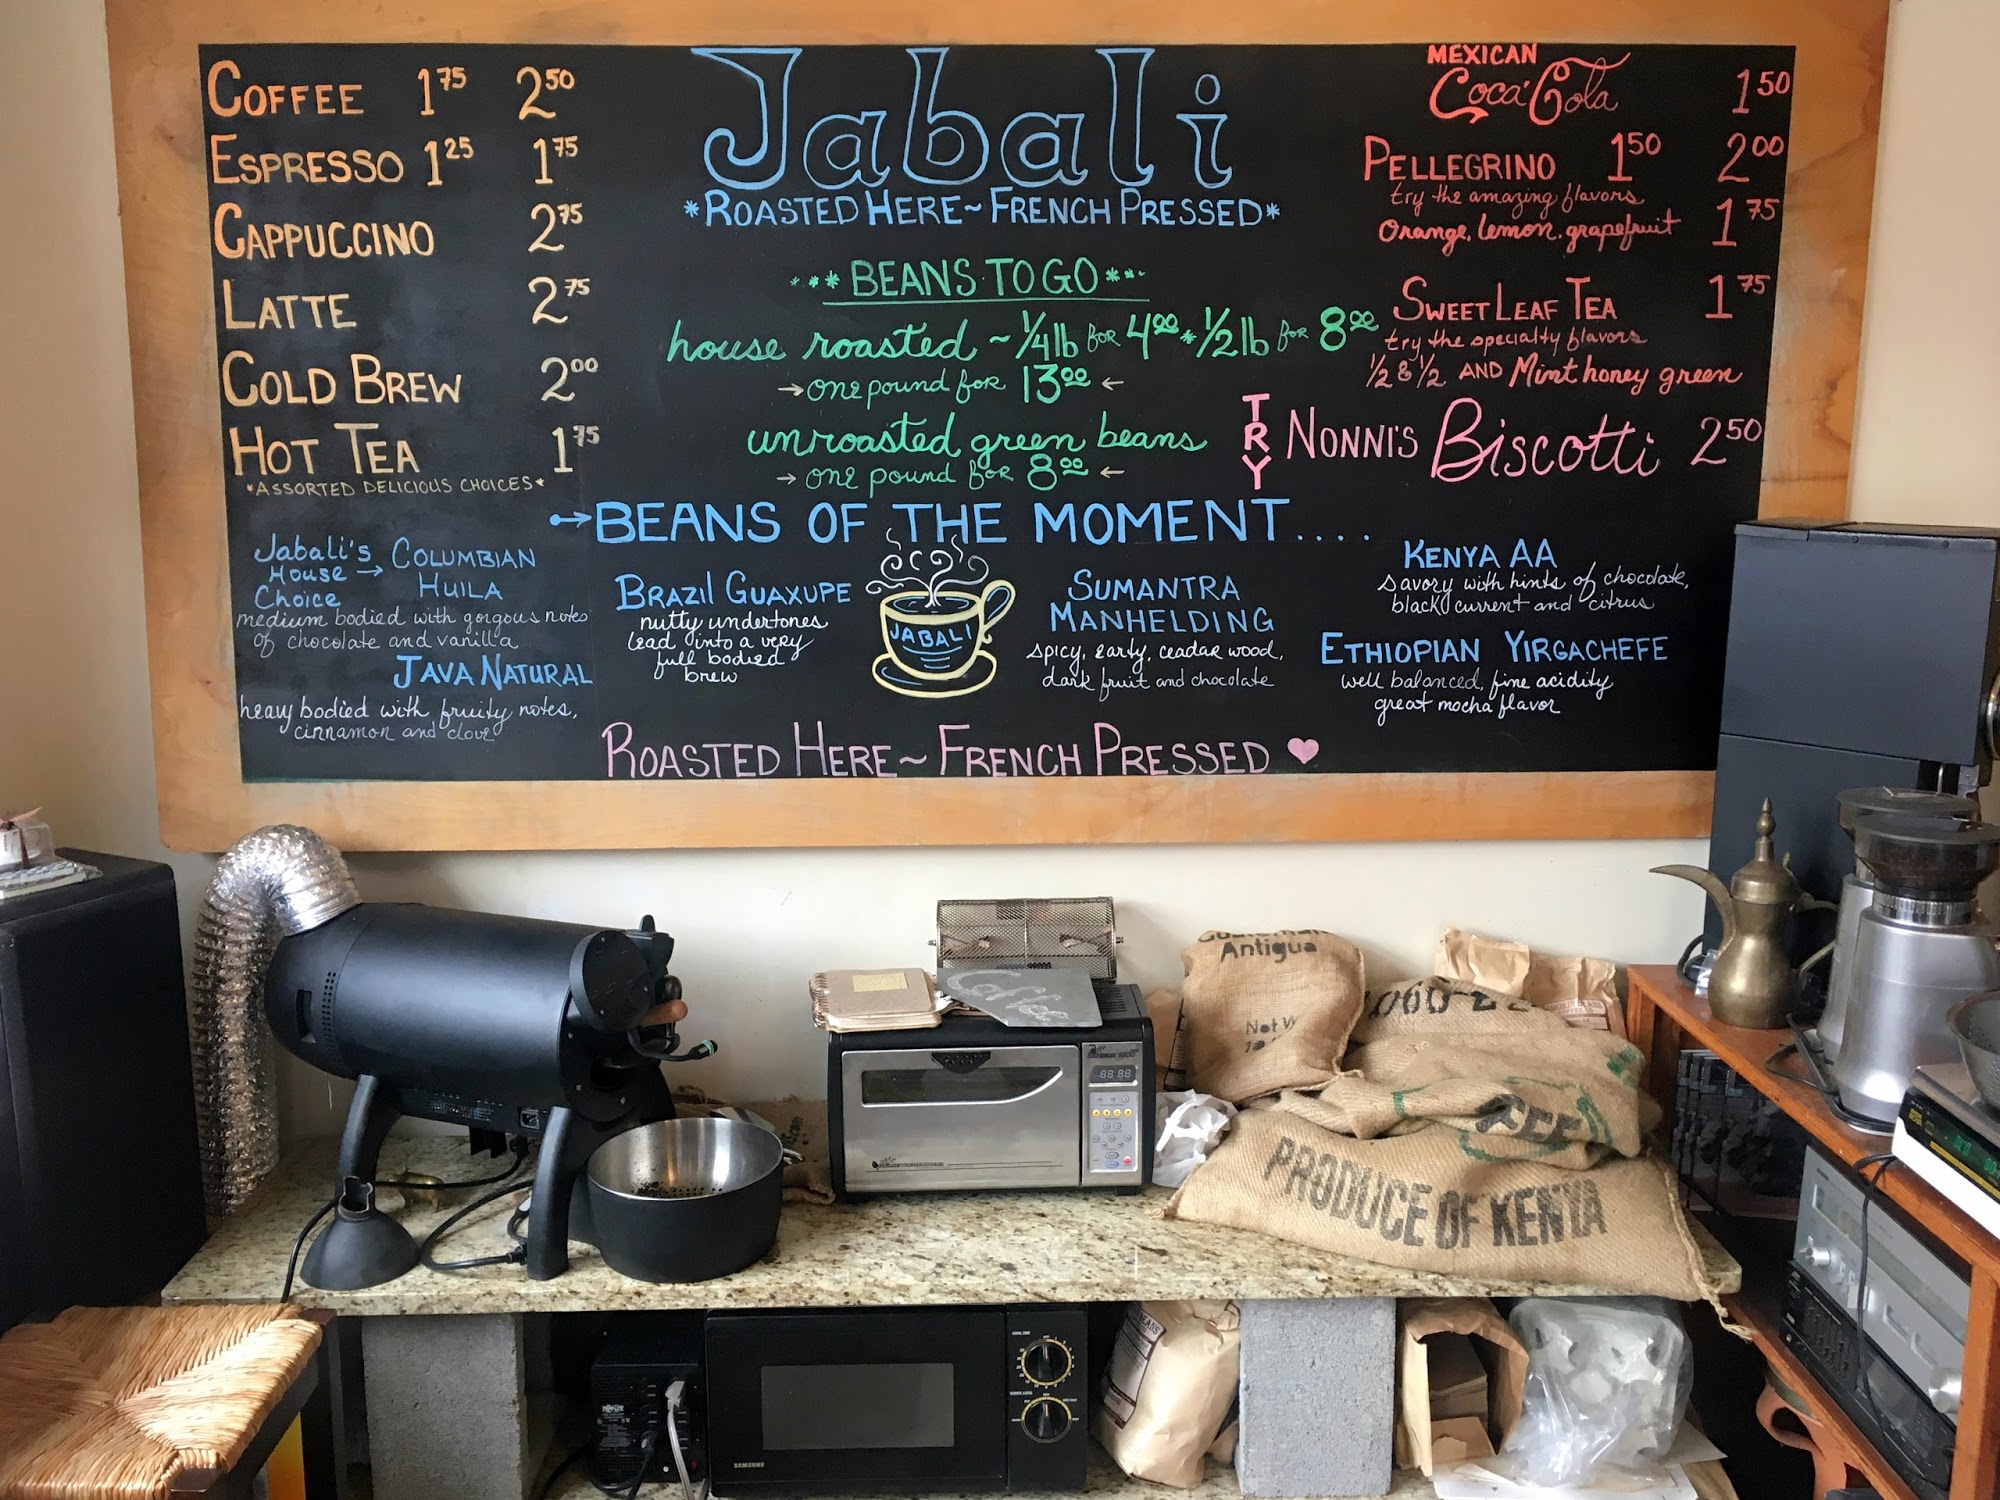 COFFEE 1.75 2.50
ESPRESSO 1.25 1.75
CAPPUCCINO 2.75
LATTE 2.75
COLD BREW 2.00
HOT TEA 1.75
*ASSORTED DELICIOUS CHOICES*
Jabali
*ROASTED HERE~FRENCH PRESSED*
BEANS TO GO
house roasted ~ 1/4 lb for 4.00 * 1/2 lb for 8.00
→ one pound for 13.00 ←
unroasted green beans
→ one pound for 8.00 ←
MEXICAN
Coca-Cola 1.50
PELLEGRINO 1.50 2.00
try the amazing flavors
Orange, lemon, grapefruit 1.75
SWEET LEAF TEA 1.75
try the specialty flavors
1/2 & 1/2 AND Mint honey green
TRY NONNI'S Biscotti 2.50
→ BEANS OF THE MOMENT....
Jabali's
House →
Choice
COLUMBIAN
HUILA
medium bodied with gorgous notes
of chocolate and vanilla
JAVA NATURAL
heavy bodied with fruity notes,
cinnamon and clove
BRAZIL GUAXUPE
nutty undertones
lead into a very
full bodied
brew
JABALI
SUMANTRA
MANHELDING
spicy, earty, ceadar wood,
dark fruit and chocolate
KENYA AA
savory with hints of chocolate,
black current and citrus
ETHIOPIAN YIRGACHEFE
well balanced, fine acidity
great mocha flavor
ROASTED HERE~FRENCH PRESSED ♥
Antigua
PRODUCE OF KENYA
SAMSUNG